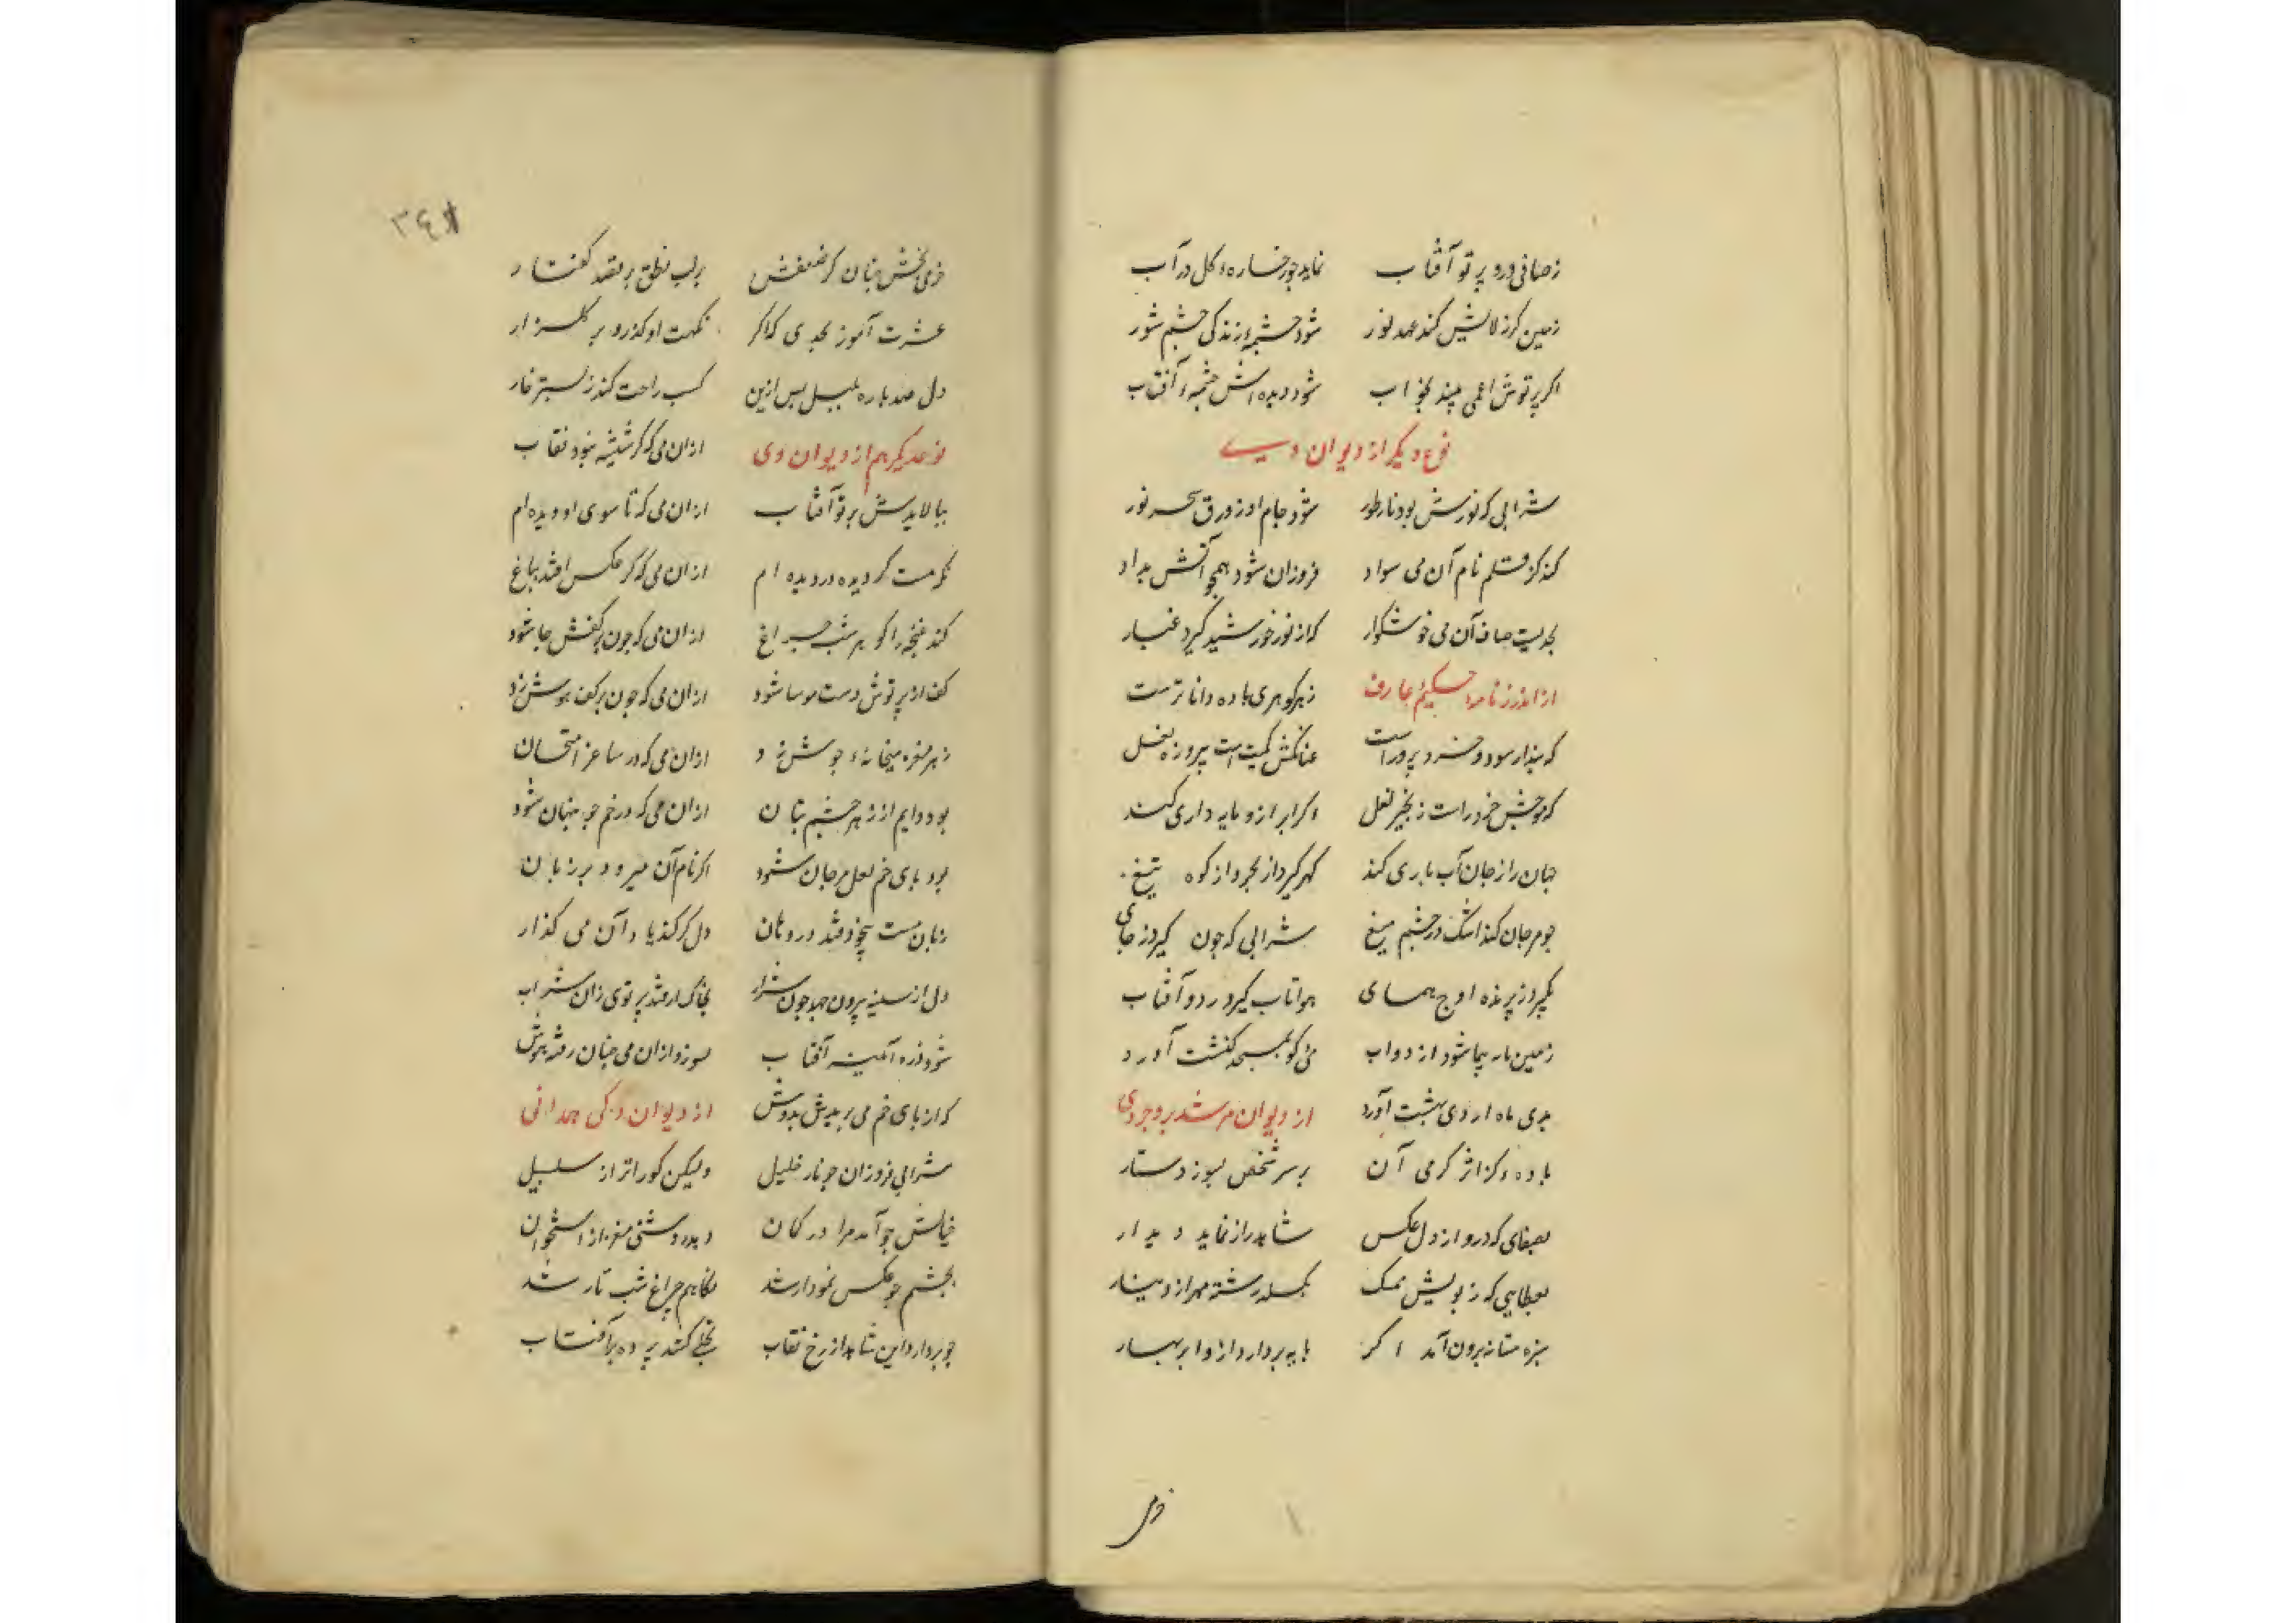 ز صافی درو پرتو آفتاب نماید چو رخساره گل در آب
زمین کر زلالیش کند عهد نور شود چشمه زندگی چشم شور
اکر پرتوش اعمی بیند بخواب شود دیده اش چشمه آفتاب
نوع دیکر از دیوان وی
شرابی که نورش بود نار طور شود جام او زورق بحر نور
کند کز قلم نام آن می سواد فروزان شود همچو آتش مداد
بحدیست صاف آن می خوشکوار که از نور خورشید کیرد غبار
از اندرز نامه حکیم عارف ز هر کوهری باده داناترست
که پندار سود و خرد پرور است عنانکش کمیت است پیروزه نعل
که موجش خرد راست زنجیر لعل اکر ابر ازو مایه داری کند
جهان را ز جان آب یاری کند کهر کیرد از بحر و از کوه تیغ
چو مرجان کند اشک در چشم میغ شرابی که چون کیرد ز جای
بکیرد ز پرنده اوج همای هوا تاب کیرد ردو آفتاب
زمین مایه پیما شود از دواب می کو بمسجد کنشت آورد
بدی ماه اردی بهشت آورد از دیوان مرشد بروجردی
باده کز اثر کرمی آن بر سر شخص بسوزد دستار
بصفای که درو از دل عکس شاهد راز نماید دیدار
بعطایی که ز بویش ممسک بکسلد رشته مهر از دینار
سبزه مستانه برون آمد اکر مایه بردارد ازو ابر بهار
خرمی
۳۴۸
خرمی بخش چنان کر ضعفش بر لب نطق بر بقعد کفتار
عشرت آموز بحدی که اکر نکهت او کذرد بر کلزار
دل صد پاره بلبل پس ازین کسب راحت کند ز بستر خار
نوع دیکر هم از دیوان وی ازان می که کر شیشه نبود نقاب
ببالایدش پرتو آفتاب ازان می که تا سوی او دیده ام
نکه مست کردیده در دیده ام ازان می که کر عکس افتد بباغ
کند غنچه را کوهر شب چراغ ازان می که چون بر کفش جا شود
کف از پرتوش دست موسا شود ازان می که چون بر کف هوش زد
ز هر مغزه میخانه جوش زد ازان می که در ساغر امتحان
بود دایم از زهر چشم بتان ازان می که در خم چو پنهان شود
بود بای خم لعل و مرجان شود اکر نام آن میرود بر زبان
زبان مست بیخود فتد در دهان دل کر کند یاد آن می کذار
دل از سینه بیرون جهد چون شرار بخاک ار فتد پرتوی زان شراب
شود ذره آئینه آفتاب بسوزد ازان می چنان رفته هوش
که از بای خم می بریدیش بدوش از دیوان دکی همدانی
شرابی فروزان چو نار خلیل ولیکن کوراتر از سلسبیل
خیالش چو آمد مرا در کمان دمد روشنی مغز از استخوان
بچشمم چو عکسش نمودار شد نکاهم چراغ شب تار شد
چو بردارد این شاهد از رخ نقاب تجلی کشد پرده بر آفتاب